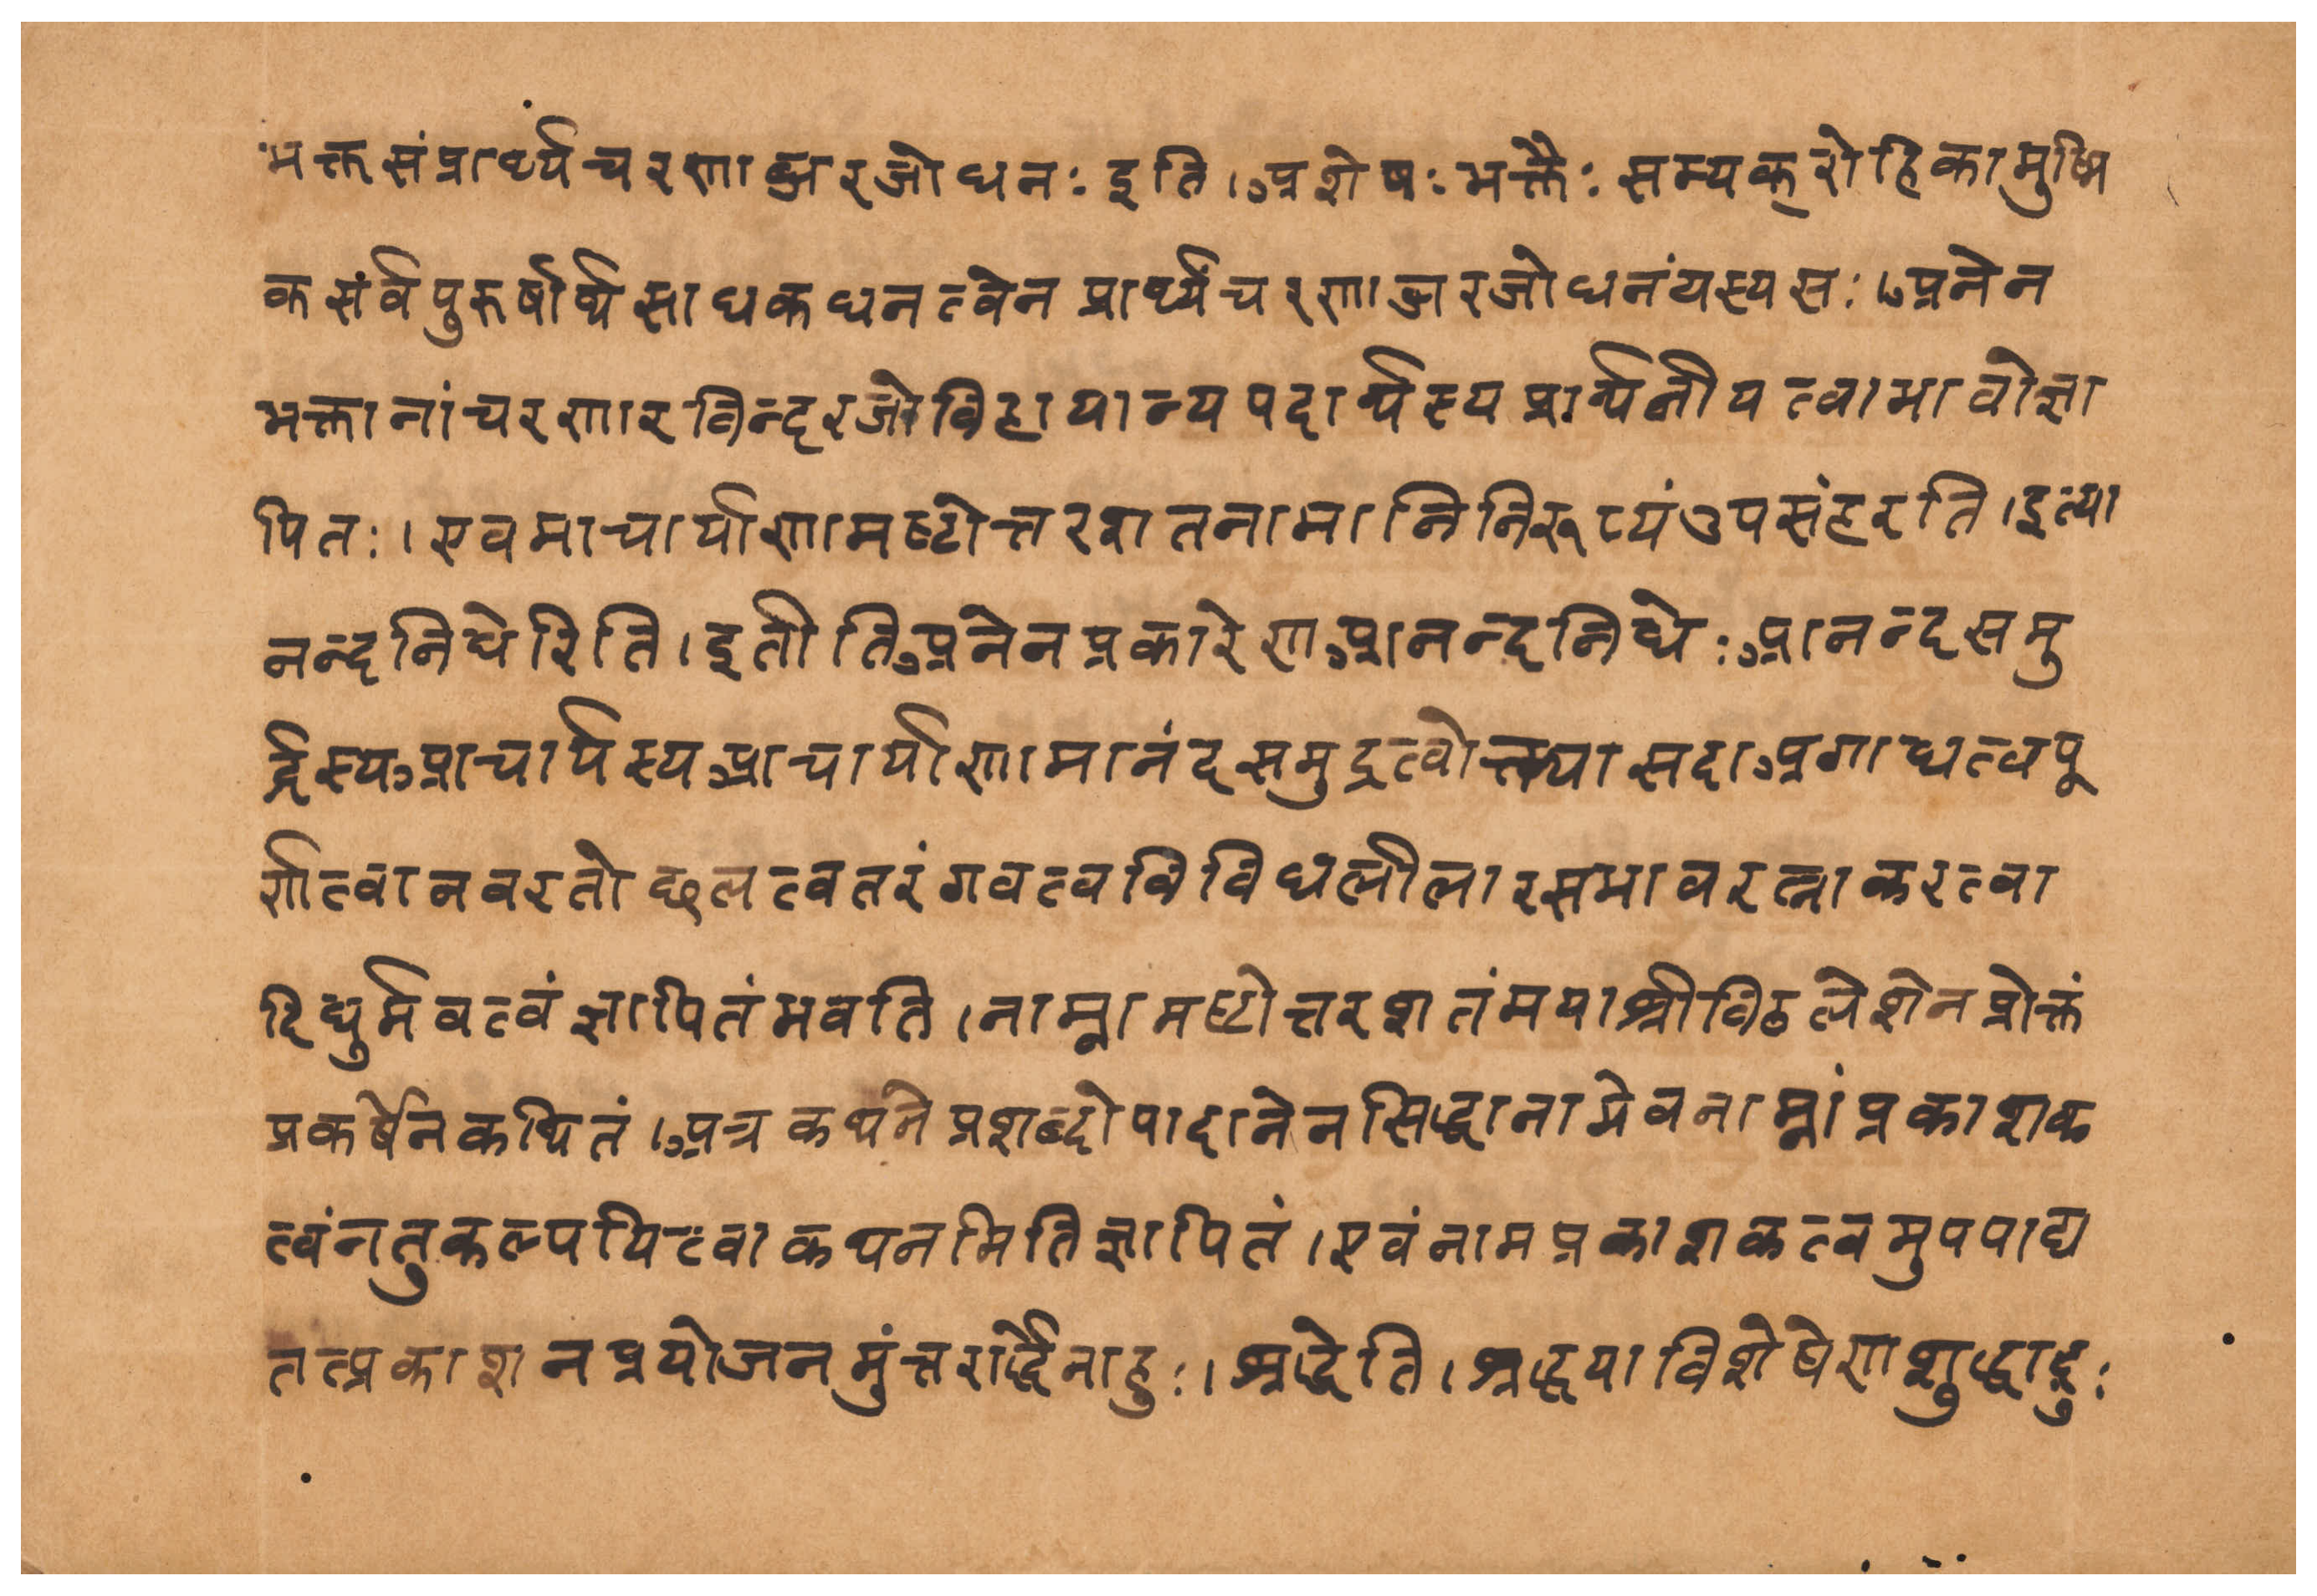 भक्तसंप्रार्थ्यचरणाब्जरजोधनः इति । अशेषः भक्तैः सम्यक् रोहिकामुष्मि
कसंर्वपुरुर्षार्थसाधकधनत्वेन प्रार्थ्यंचरणाब्जरजोधनंयस्यसः । अनेन
भक्तानांचरणारविन्दरजोविहायान्यपदार्थस्यप्रार्थनीयत्वाभावोज्ञा
पितः । एवमाचार्याणामष्टोत्तरशतनामानिनिरूप्यंउपसंहरति । इत्या
नन्दनिधेरिति । इतीतिअनेनप्रकारेणआनन्दनिधेः आनन्दसमु
र्द्रस्यआचार्यस्यआचार्याणामानंदसमुद्रत्वोक्त्यासदाअगाधत्वपू
र्णत्वानवरतोछलत्वतरंगवत्वविविधलीलारसभावरत्नाकरत्वा
दिधर्मवत्वंज्ञापितंभवति । नाम्नामष्टोत्तरशतंमयाश्रीविठलेशेनप्रोक्तं
प्रकर्षेनकथितं । अत्रकथनेप्रशब्दोपादानेनसिद्धानामेवनाम्नांप्रकाशक
त्वंनतुकल्पयित्वाकथनमितिज्ञापितं । एवंनामप्रकाशकत्वमुपपाद्य
तत्प्रकाशनप्रयोजनमुंत्तरार्द्धेनाहुः । श्रद्धेति । श्रद्धयाविशेषेणशुद्धाद्रुः